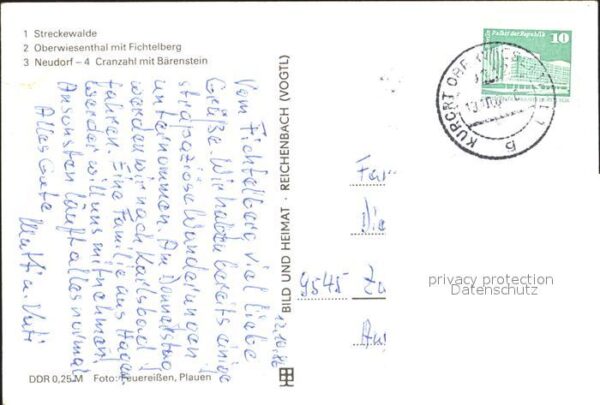 1 Streckewalde
2 Oberwiesenthal mit Fichtelberg
3 Neudorf – 4 Cranzahl mit Bärenstein
Vom Fichtelberg viel liebe
Grüße. Wir haben bereits einige
strapaziöse Wanderungen
unternommen. Am Donnerstag
werden wir nach Karlsbad
fahren. Eine Familie aus Hagen
Werder will uns mitnehmen.
Ansonsten läuft alles normal
Alles Gute
Mutti u. Vati
12.10.86
DDR 0,25 M Foto: Feuereißen, Plauen
BILD UND HEIMAT · REICHENBACH (VOGTL)
Palast der Republik
10
KURORT
b
Fam
Die
9545 Zw
privacy protection
Datenschutz